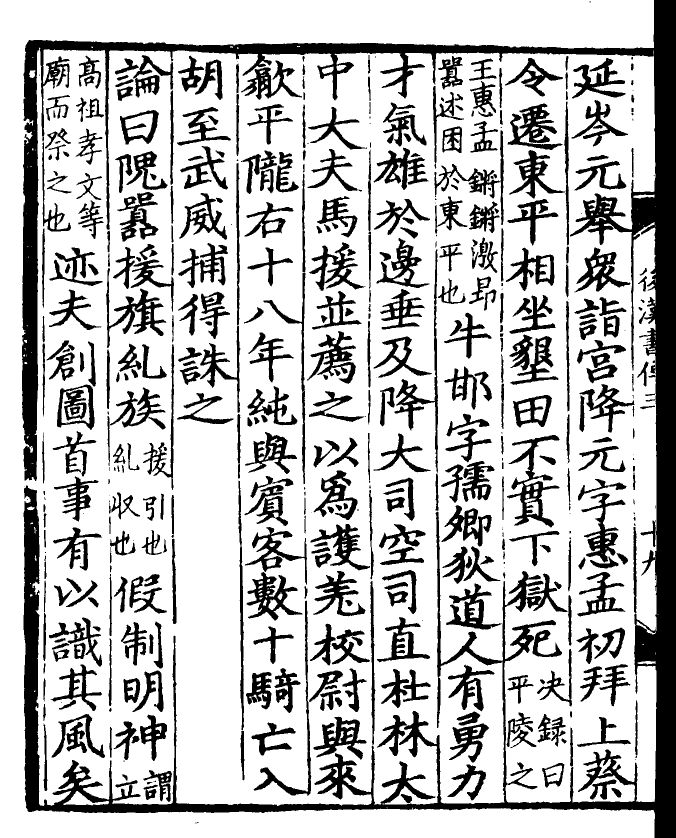 後漢書傳三 十九
延岑元舉衆詣宮降元字惠孟初拜上蔡
令遷東平相坐墾田不實下獄死决録曰平陵之
王惠孟鏘鏘激昂囂述困於東平也牛邯字孺卿狄道人有勇力
才氣雄於邊垂及降大司空司直杜林太
中大夫馬援並薦之以爲護羌校尉與來
歙平隴右十八年純與賓客數十騎亡入
胡至武威捕得誅之
論曰隗囂援旗糺族援引也糺収也假制明神謂立
高祖孝文等廟而祭之也迹夫創圖首事有以識其風矣